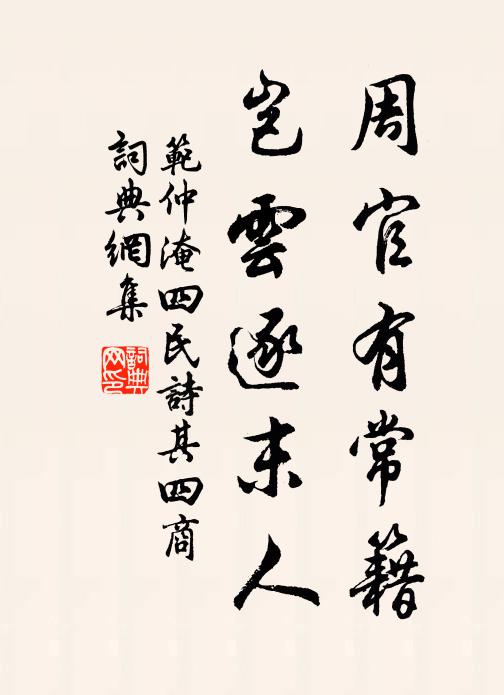 周官有常籍
豈雲逐末人
範仲淹四民詩其四商
詞典網集
詞典網印